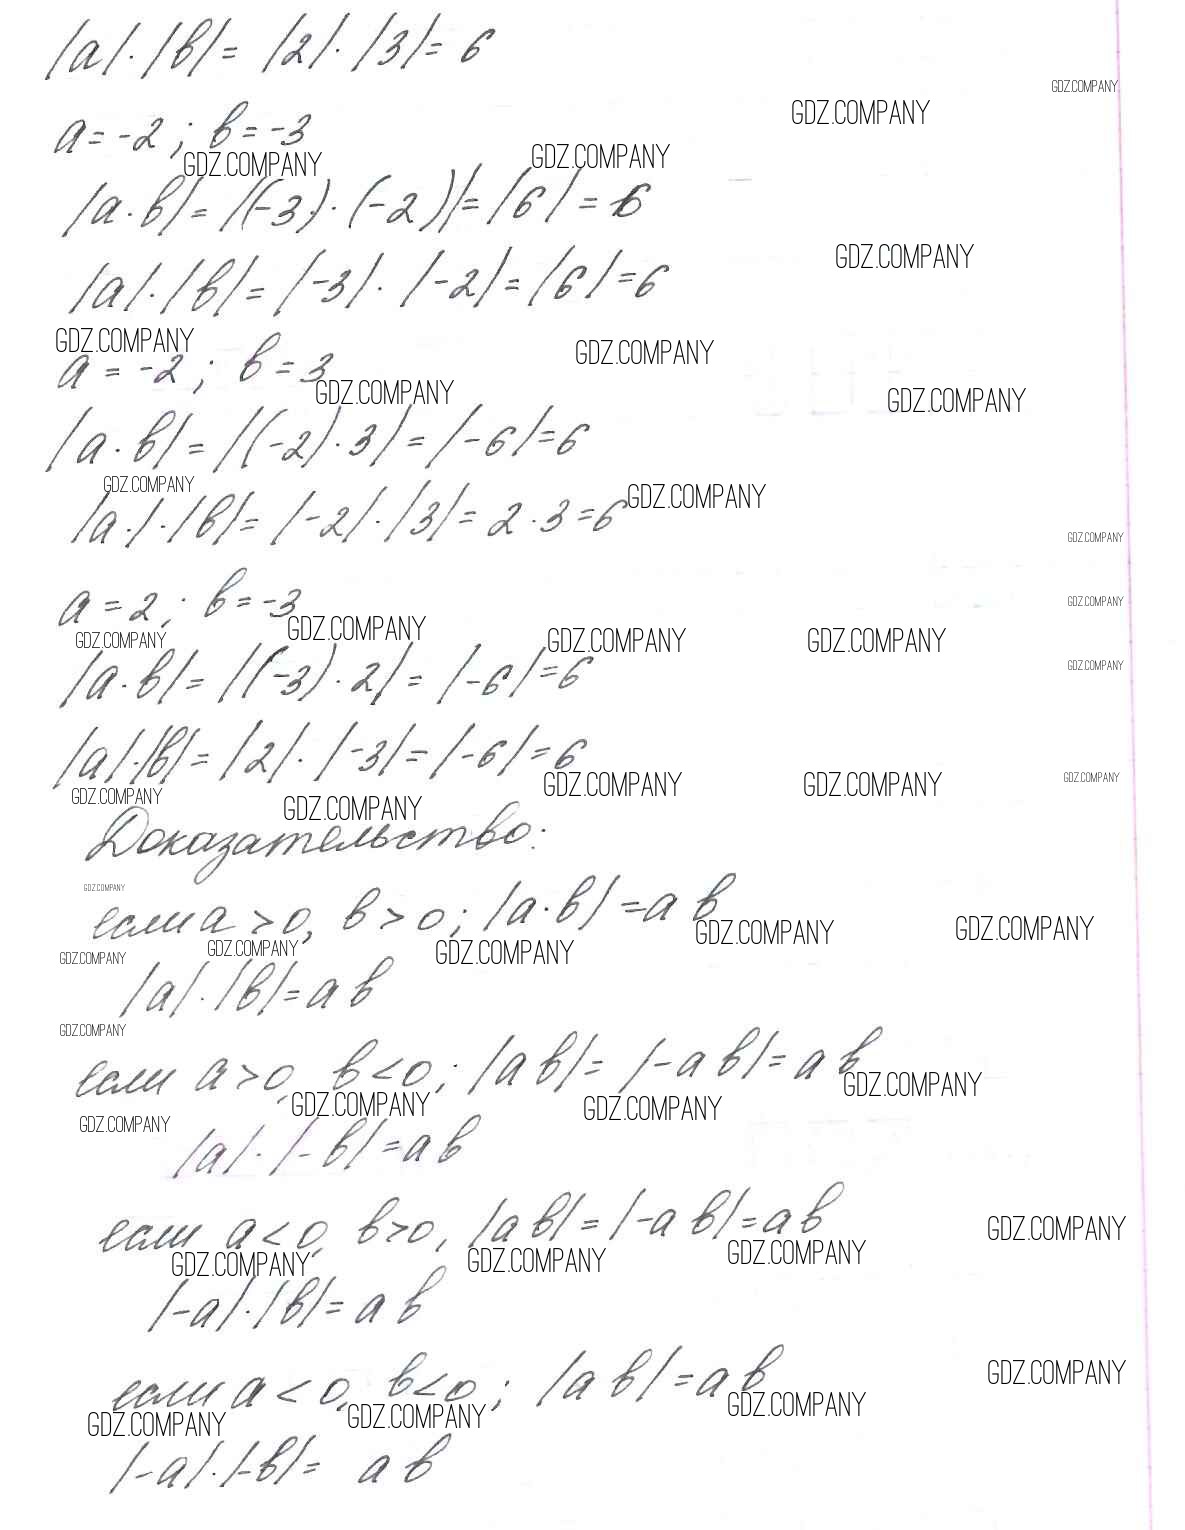 |a|·|b| = |2|·|3| = 6
GDZ.COMPANY
GDZ.COMPANY
a = -2; b = -3
GDZ.COMPANY GDZ.COMPANY
|a·b| = |(-3)·(-2)| = |6| = 6
GDZ.COMPANY
|a|·|b| = |-3|·|-2| = |6| = 6
GDZ.COMPANY GDZ.COMPANY
a = -2; b = 3
GDZ.COMPANY GDZ.COMPANY
|a·b| = |(-2)·3| = |-6| = 6
GDZ.COMPANY GDZ.COMPANY
|a·|·|b| = |-2|·|3| = 2·3 = 6
GDZ.COMPANY
a = 2; b = -3
GDZ.COMPANY
GDZ.COMPANY GDZ.COMPANY GDZ.COMPANY GDZ.COMPANY
GDZ.COMPANY
|a·b| = |(-3)·2| = |-6| = 6
|a|·|b| = |2|·|-3| = |-6| = 6
GDZ.COMPANY GDZ.COMPANY GDZ.COMPANY
GDZ.COMPANY GDZ.COMPANY
Доказательство:
GDZ.COMPANY
если a > 0, b > 0; |a·b| = a b
GDZ.COMPANY GDZ.COMPANY
GDZ.COMPANY GDZ.COMPANY GDZ.COMPANY
|a|·|b| = a b
GDZ.COMPANY
если a > 0, b < 0; |a b| = |-a b| = a b
GDZ.COMPANY GDZ.COMPANY GDZ.COMPANY
GDZ.COMPANY
|a|·|-b| = a b
если a < 0, b > 0, |a b| = |-a b| = a b
GDZ.COMPANY
GDZ.COMPANY GDZ.COMPANY GDZ.COMPANY
|-a|·|b| = a b
если a < 0, b < 0; |a b| = a b
GDZ.COMPANY
GDZ.COMPANY GDZ.COMPANY GDZ.COMPANY
|-a|·|-b| = a b